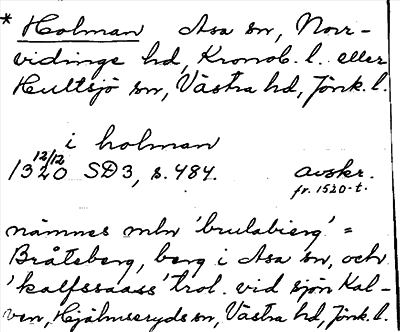 * Holman Asa sn, Norr-
vidinge hd, Kronob. l. eller
Hultsjö sn, Västra hd, Jönk. l.
i holman
12/12
1320 SD3, s. 484. avskr.
fr. 1520-t.
nämnes mln 'brulabierg' =
Bråteberg, berg i Asa sn, och
'kalfssaass' trol. vid sjön Kal-
ven, Hjälmseryds sn, Västra hd, Jönk. l.